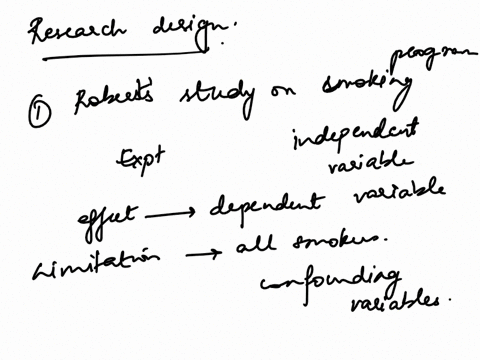 Research design.
① Robert's study on smoking program
Expt independent variable
effect → dependent variable
Limitation → all smokers.
confounding variables.